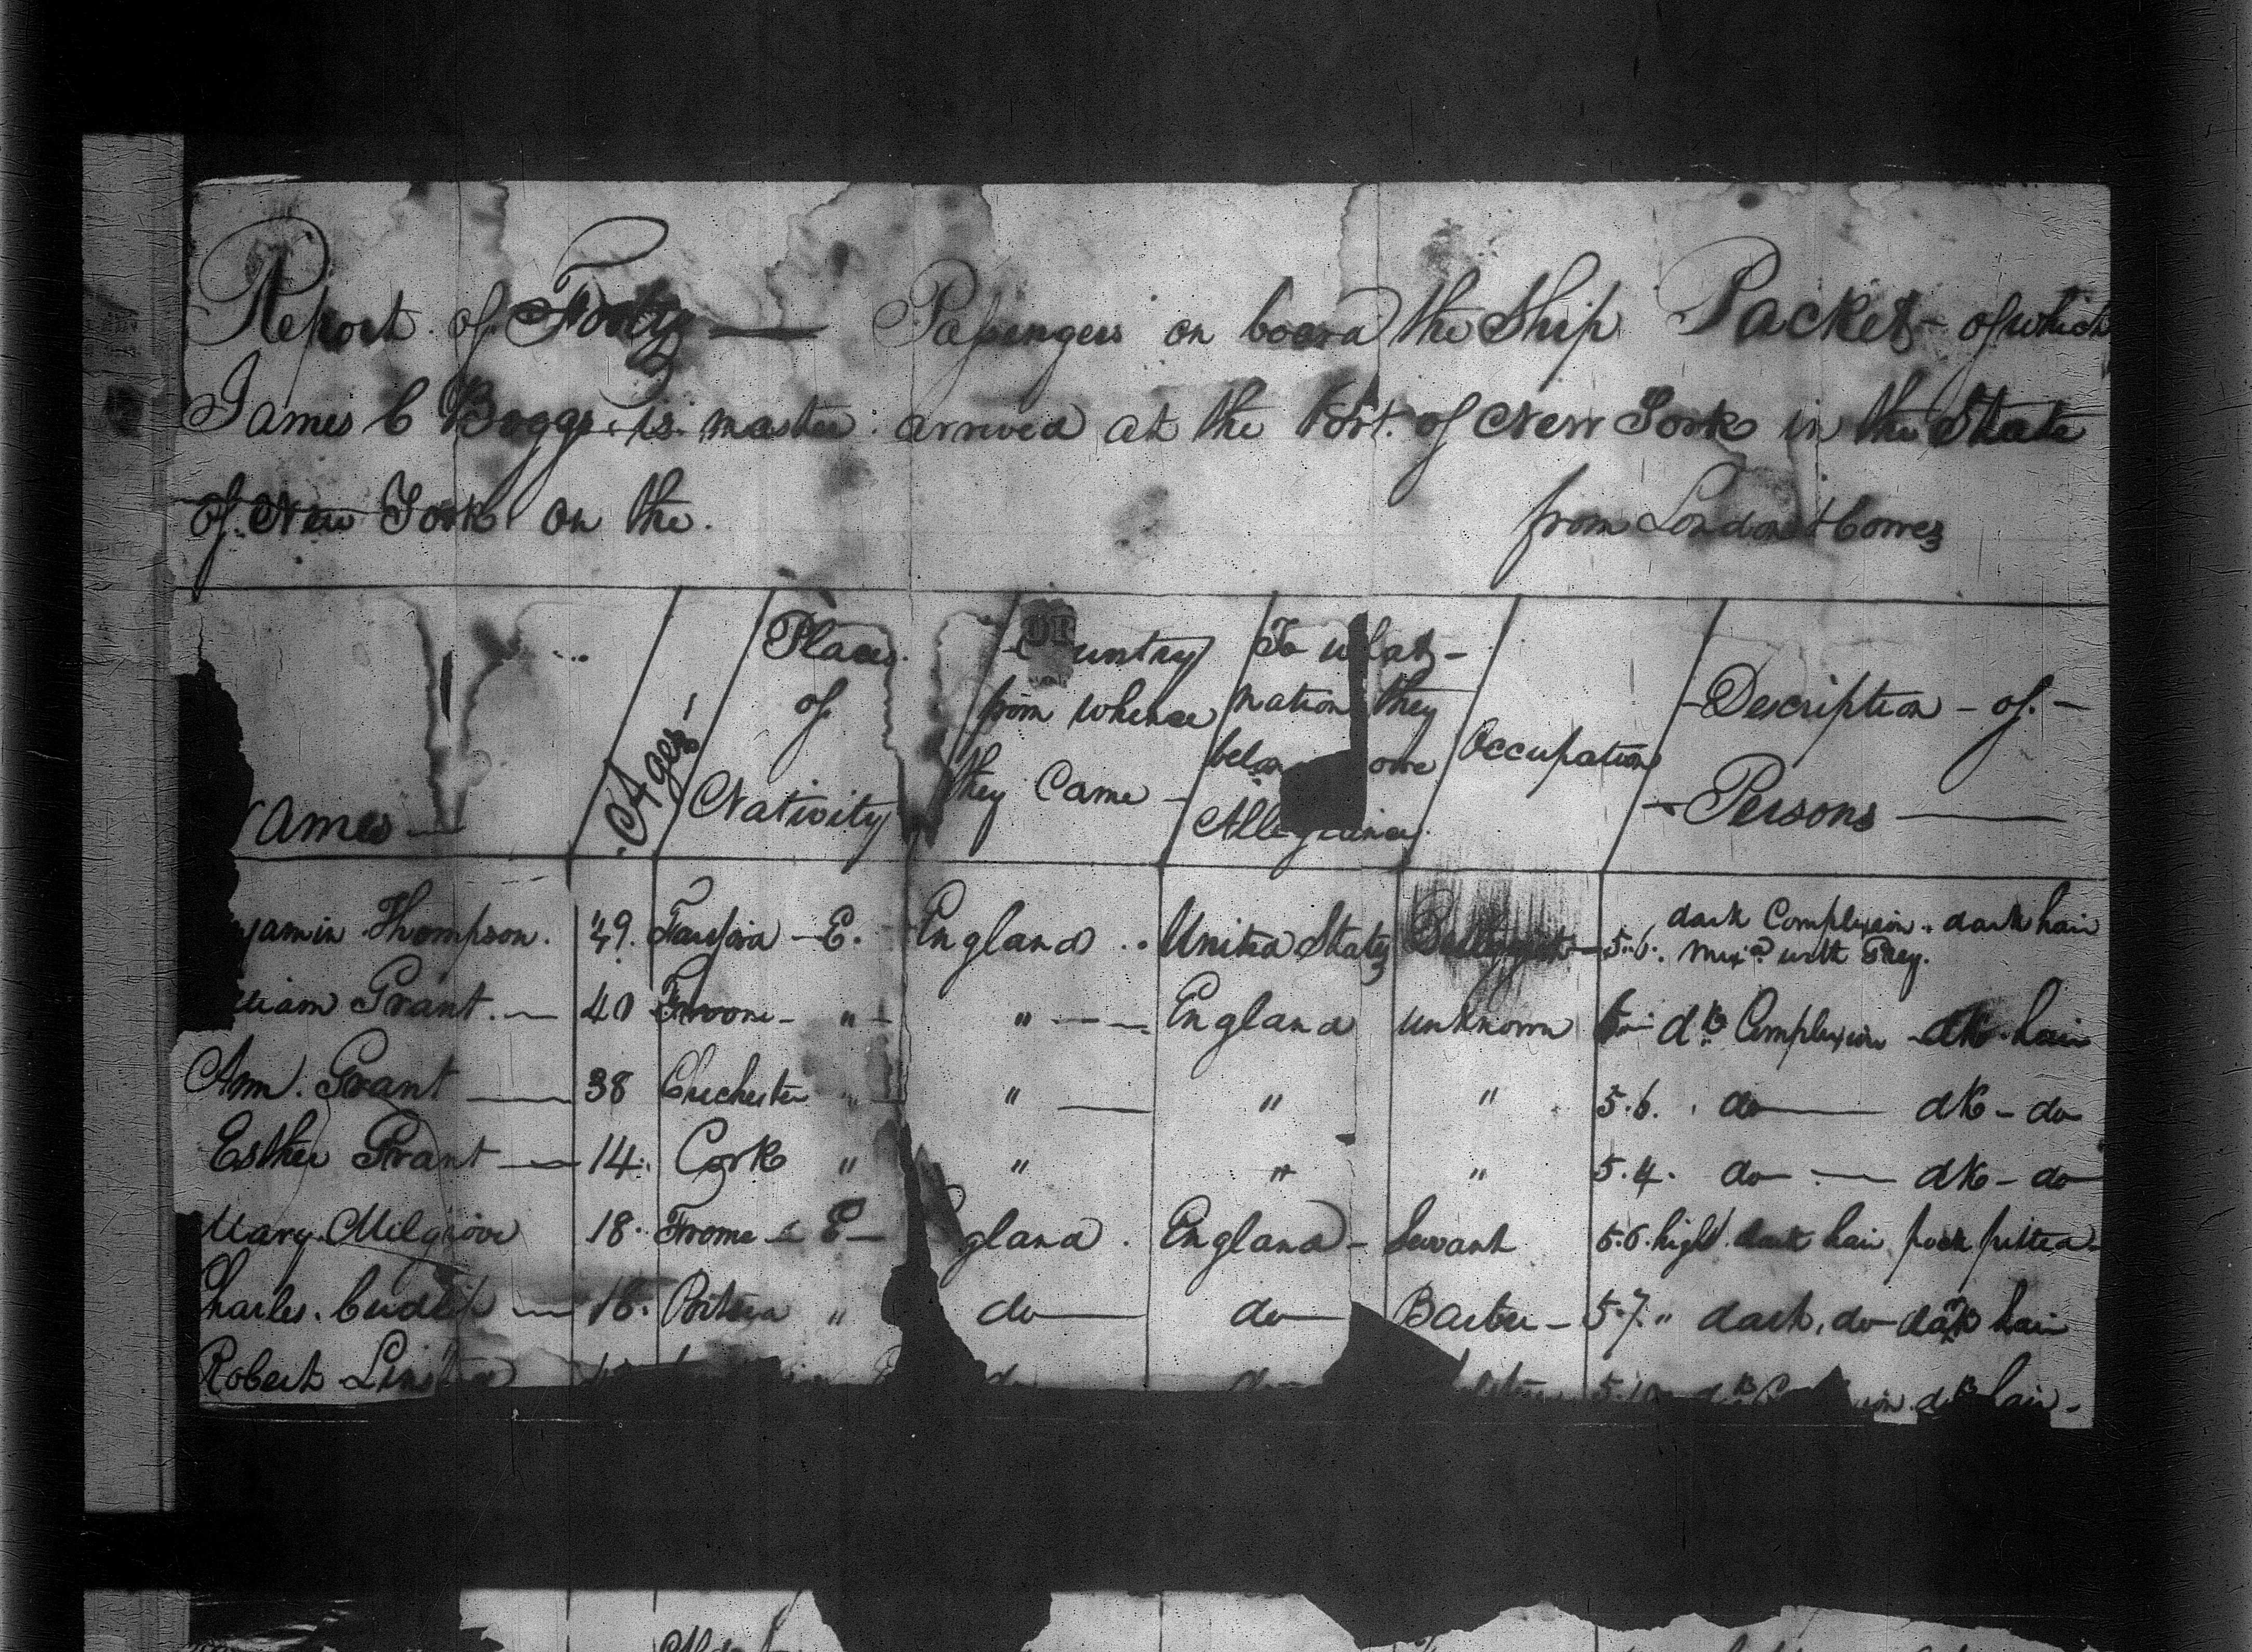 Report of Forty — Passengers on board the Ship Packet - of which
James C Boggs is master arrived at the Port of New York in the State
of New York on the
from London & Cowes
ames —
Ages
Place of Nativity
untry from whence they Came —
To what nation they belon owe Allegiance
Occupation
Description of Persons
jamin Thompson. 49. E. England United States 5.6. dark Complexion dark hair
mixd with Grey.
liam Grant. — 40 Froome " " — England unknown dk Complexion dk hair
Ann Grant — 38 Chichester " " — " " 5.6. do — dk - do
Esther Grant — 14. Cork " " " " 5.4. do — dk - do
Mary Milgrove 18. Frome E gland. England - Servant 5.6. high dark hair pock pitted
Charles — 18. Portsea " do — do — 5.7 " dark do dark hair
Robert do do 5.10 dk C ion dk hair -